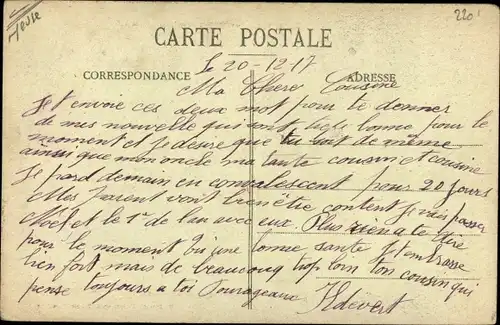 Meuse
2201
CARTE POSTALE
Le 20-12-17
CORRESPONDANCE
ADRESSE
Ma Chere Cousine
Je t envoie ces deux mot pour te donner
de mes nouvelle qui sont tres bonne pour le
moment et je desire que tu soit de même
ainsi que mon oncle ma tante cousin et cousine
Je pard demain en convalescent pour 20 jours
Mes Parent vont bien être content je vais passer
Noel et le 1er de l an avec eux. Plus rien a te dire
pour le moment qu une bonne sante Je t embrasse
bien fort mais de beaucoup trop loin ton cousin qui
pense toujours a toi